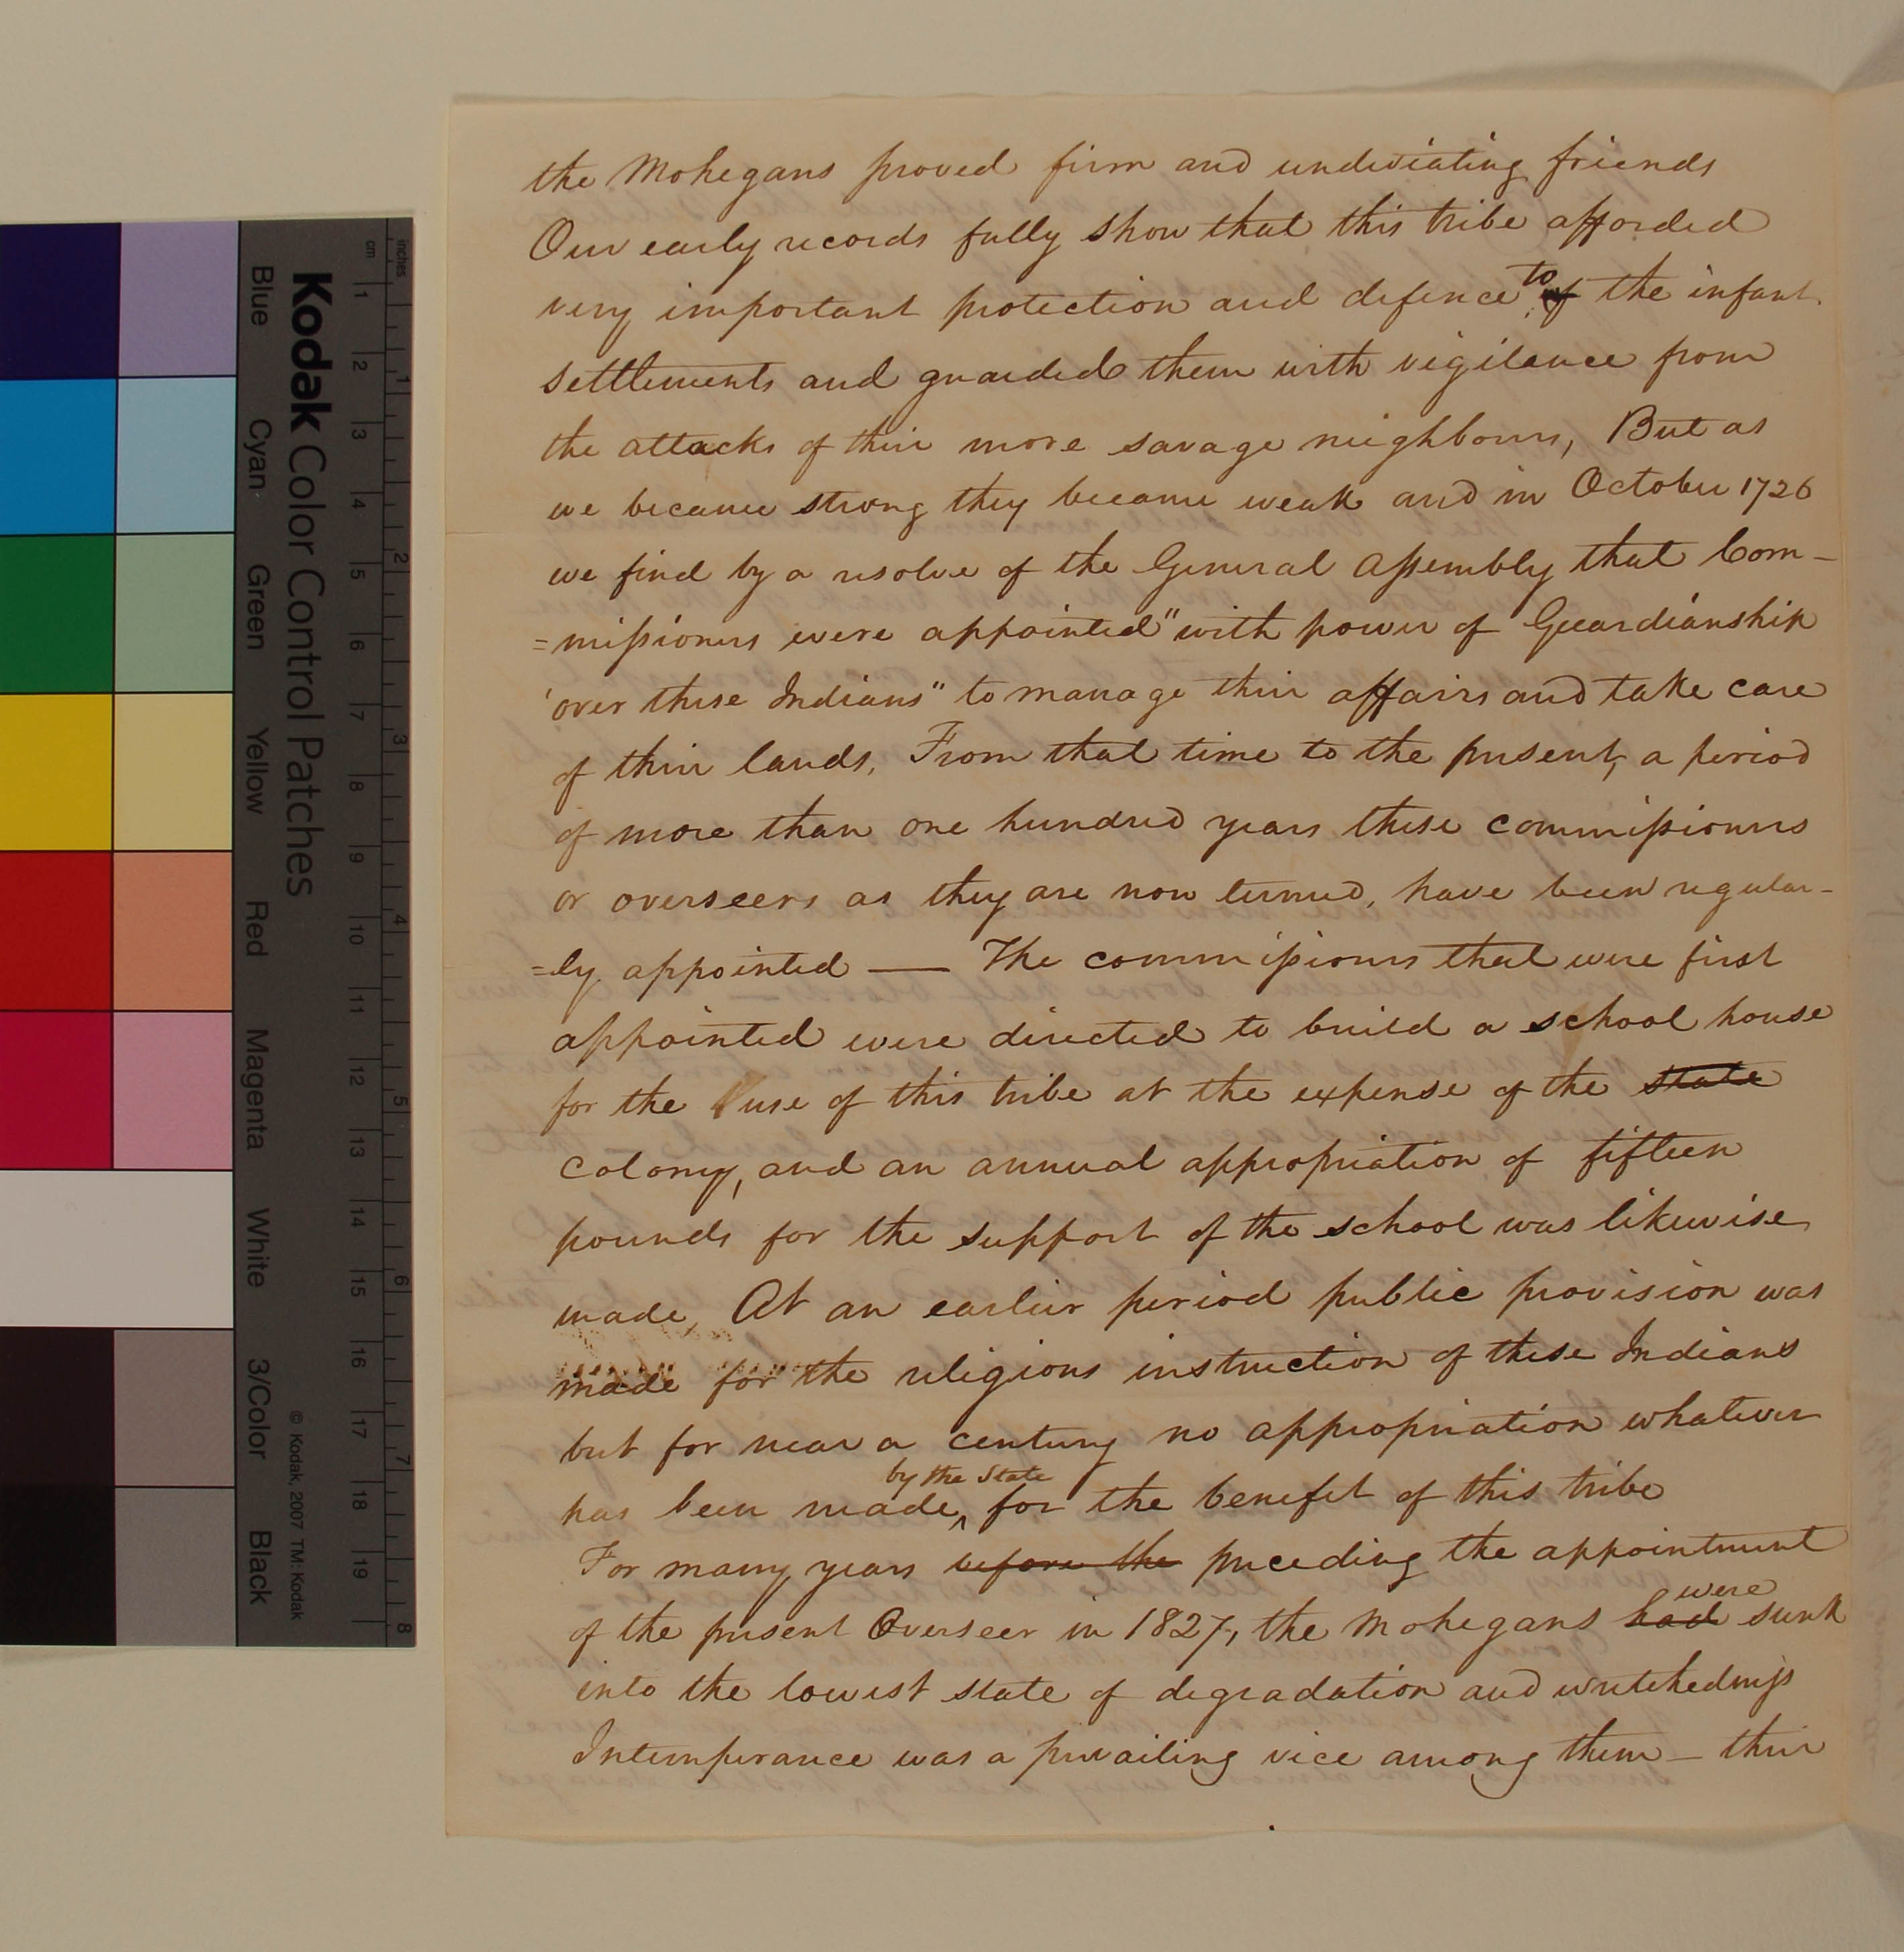 the Mohegans proved firm and undeviating friends
Our early records fully show that this tribe afforded
very important protection and defence to of the infant
settlements and guarded them with vigilance from
the attacks of their more savage neighbours, But as
we became strong they became weak and in October 1726
we find by a resolve of the General Assembly that Com-
=missioners were appointed "with power of Guardianship
'over these Indians" to manage their affairs and take care
of their lands. From that time to the present, a period
of more than one hundred years these commissioners
or overseers as they are now termed, have been regular-
=ly appointed — The commissioners that were first
appointed were directed to build a school house
for the use of this tribe at the expense of the state
Colony, and an annual appropriation of fifteen
pounds for the support of the school was likewise
made, At an earlier period public provision was
made for the religious instruction of these Indians
but for near a century no appropriation whatever
by the State
has been made, ^ for the benefit of this tribe
For many years before the preceding the appointment
were
of the present Overseer in 1827, the Mohegans had sunk
into the lowest state of degradation and wretchedness
Intemperance was a prevailing vice among them — their
Kodak Color Control Patches
Blue Cyan Green Yellow Red Magenta White 3/Color Black
© Kodak, 2007 TM: Kodak
inches 1 2 3 4 5 6 7 8
cm 1 2 3 4 5 6 7 8 9 10 11 12 13 14 15 16 17 18 19